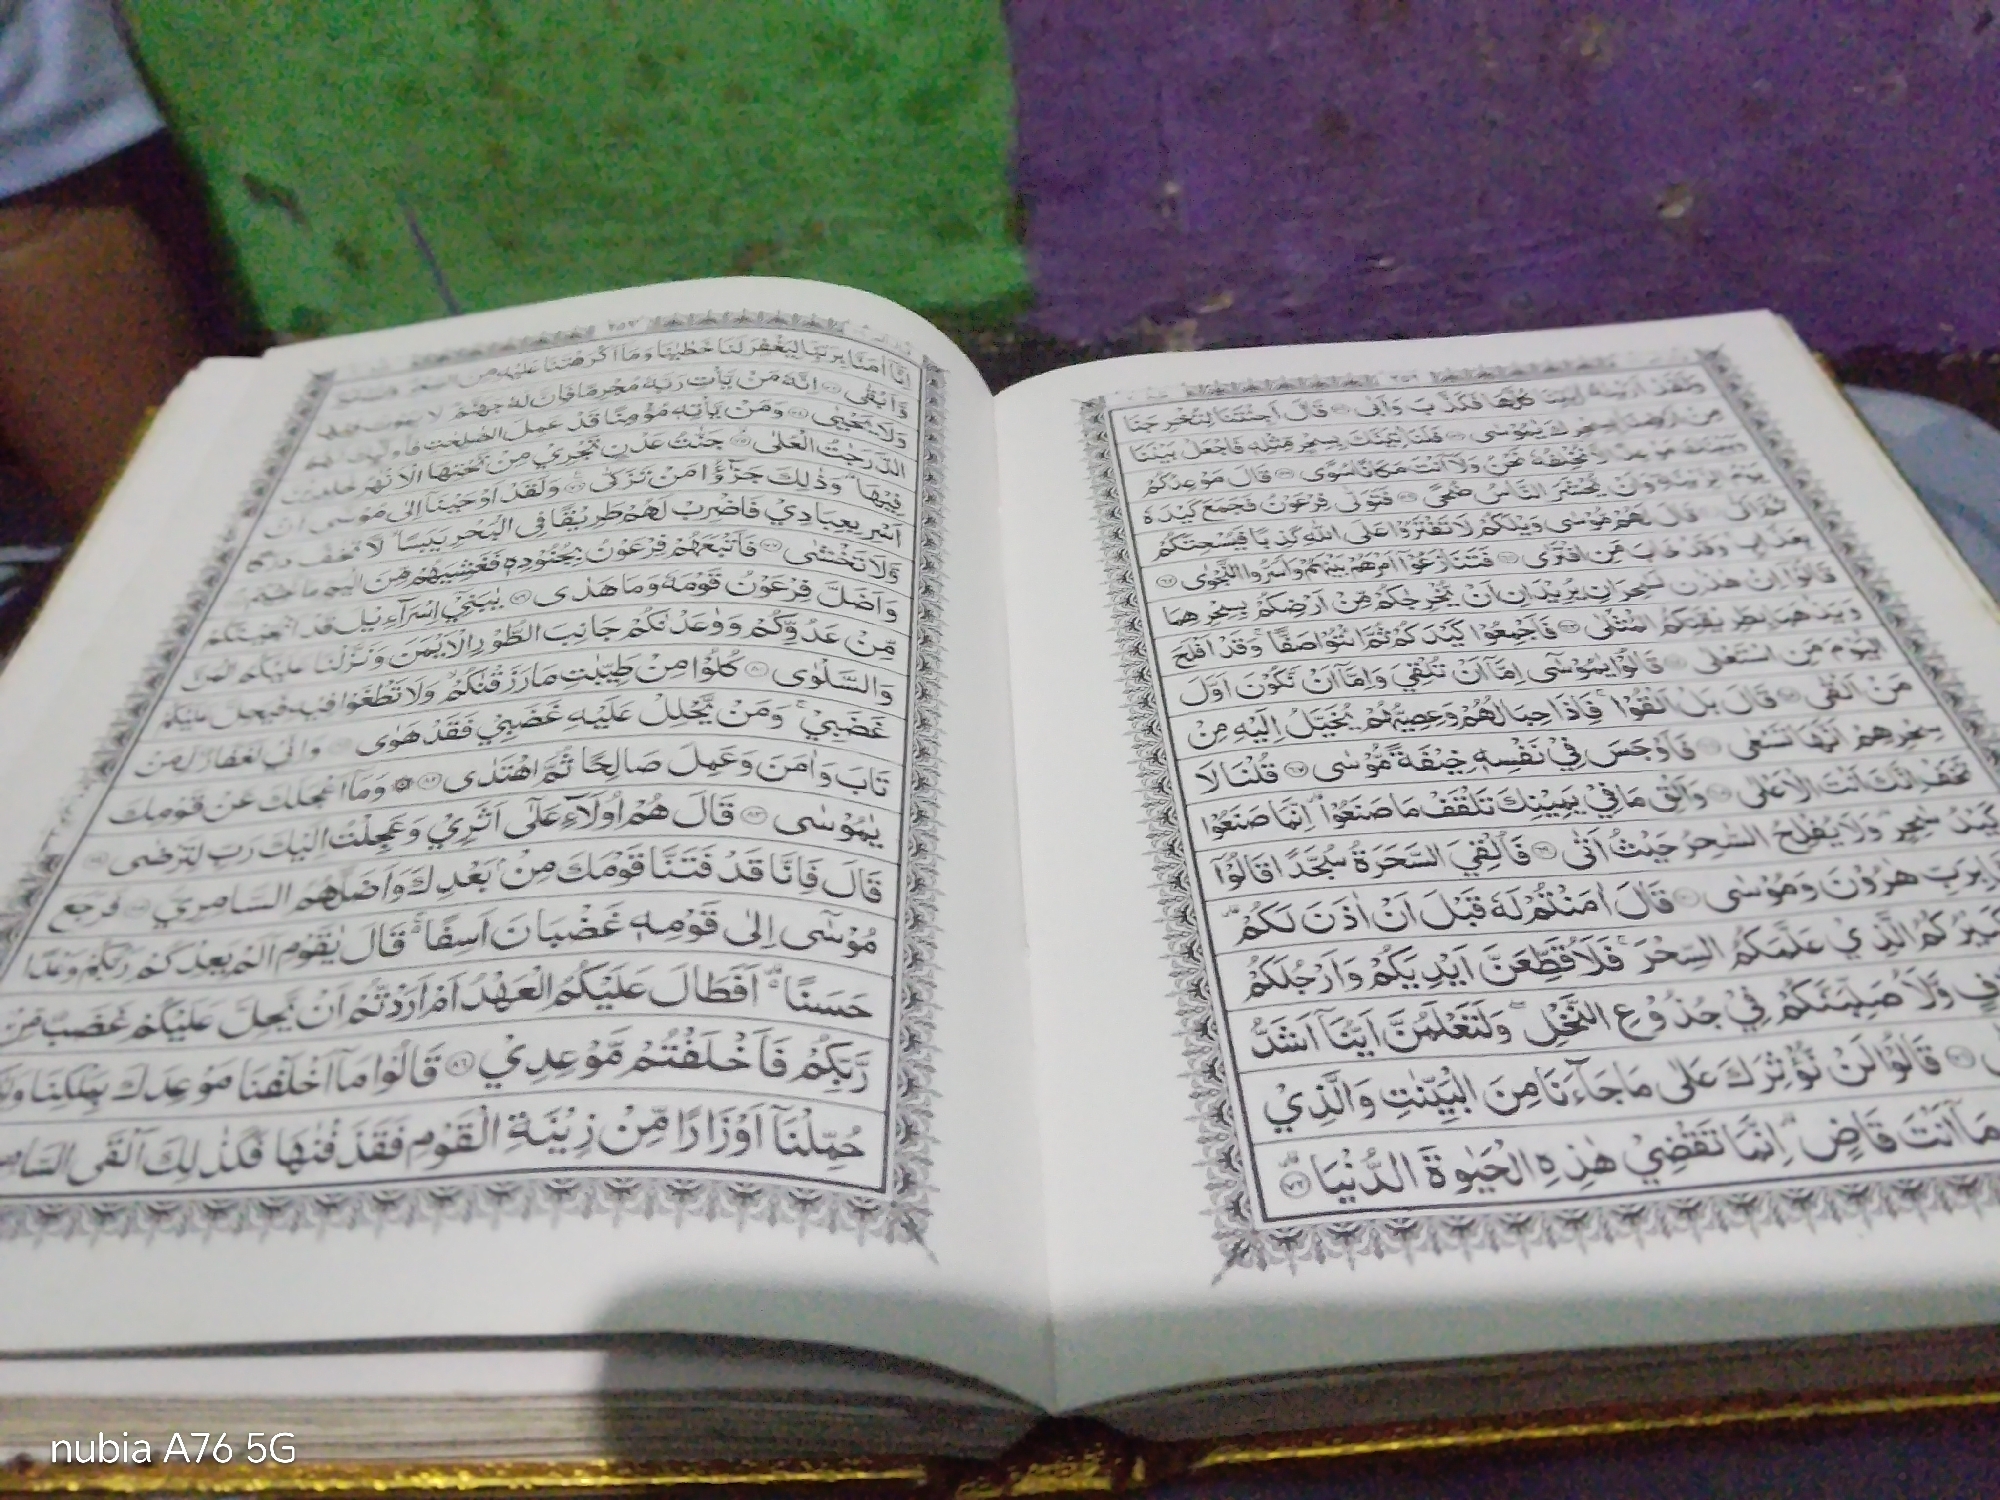 ٢٥٢
اٰيٰتِنَا كُلَّهَا فَكَذَّبَ وَاَبٰى ۝ قَالَ اَجِئْتَنَا لِتُخْرِجَنَا
مِنْ اَرْضِنَا بِسِحْرِكَ يٰمُوْسٰى ۝ فَلَنَاْتِيَنَّكَ بِسِحْرٍ مِّثْلِهٖ فَاجْعَلْ بَيْنَنَا
وَبَيْنَكَ مَوْعِدًا لَّا نُخْلِفُهٗ نَحْنُ وَلَآ اَنْتَ مَكَانًا سُوًى ۝ قَالَ مَوْعِدُكُمْ
يَوْمُ الزِّيْنَةِ وَاَنْ يُّحْشَرَ النَّاسُ ضُحًى ۝ فَتَوَلّٰى فِرْعَوْنُ فَجَمَعَ كَيْدَهٗ
ثُمَّ اَتٰى ۝ قَالَ لَهُمْ مُّوْسٰى وَيْلَكُمْ لَا تَفْتَرُوْا عَلَى اللّٰهِ كَذِبًا فَيُسْحِتَكُمْ
بِعَذَابٍ ۚ وَقَدْ خَابَ مَنِ افْتَرٰى ۝ فَتَنَازَعُوْٓا اَمْرَهُمْ بَيْنَهُمْ وَاَسَرُّوا النَّجْوٰى ۝
قَالُوْٓا اِنْ هٰذٰنِ لَسٰحِرٰنِ يُرِيْدٰنِ اَنْ يُّخْرِجٰكُمْ مِّنْ اَرْضِكُمْ بِسِحْرِهِمَا
وَيَذْهَبَا بِطَرِيْقَتِكُمُ الْمُثْلٰى ۝ فَاَجْمِعُوْا كَيْدَكُمْ ثُمَّ ائْتُوْا صَفًّا ۚ وَقَدْ اَفْلَحَ
الْيَوْمَ مَنِ اسْتَعْلٰى ۝ قَالُوْا يٰمُوْسٰٓى اِمَّآ اَنْ تُلْقِيَ وَاِمَّآ اَنْ نَّكُوْنَ اَوَّلَ
مَنْ اَلْقٰى ۝ قَالَ بَلْ اَلْقُوْا ۚ فَاِذَا حِبَالُهُمْ وَعِصِيُّهُمْ يُخَيَّلُ اِلَيْهِ مِنْ
سِحْرِهِمْ اَنَّهَا تَسْعٰى ۝ فَاَوْجَسَ فِيْ نَفْسِهٖ خِيْفَةً مُّوْسٰى ۝ قُلْنَا لَا
تَخَفْ اِنَّكَ اَنْتَ الْاَعْلٰى ۝ وَاَلْقِ مَا فِيْ يَمِيْنِكَ تَلْقَفْ مَا صَنَعُوْا ۗ اِنَّمَا صَنَعُوْا
كَيْدُ سٰحِرٍ ۗ وَلَا يُفْلِحُ السّٰحِرُ حَيْثُ اَتٰى ۝ فَاُلْقِيَ السَّحَرَةُ سُجَّدًا قَالُوْٓا
بِرَبِّ هٰرُوْنَ وَمُوْسٰى ۝ قَالَ اٰمَنْتُمْ لَهٗ قَبْلَ اَنْ اٰذَنَ لَكُمْ ۗ
الَّذِيْ عَلَّمَكُمُ السِّحْرَ ۚ فَلَاُقَطِّعَنَّ اَيْدِيَكُمْ وَاَرْجُلَكُمْ
وَّلَاُصَلِّبَنَّكُمْ فِيْ جُذُوْعِ النَّخْلِ ۖ وَلَتَعْلَمُنَّ اَيُّنَآ اَشَدُّ
قَالُوْا لَنْ نُّؤْثِرَكَ عَلٰى مَا جَآءَنَا مِنَ الْبَيِّنٰتِ وَالَّذِيْ
مَآ اَنْتَ قَاضٍ ۗ اِنَّمَا تَقْضِيْ هٰذِهِ الْحَيٰوةَ الدُّنْيَا ۗ ۝٧٢
٢٥٣
اِنَّآ اٰمَنَّا بِرَبِّنَا لِيَغْفِرَ لَنَا خَطٰيٰنَا وَمَآ اَكْرَهْتَنَا عَلَيْهِ مِنَ السِّحْرِ
وَّاَبْقٰى ۝ اِنَّهٗ مَنْ يَّاْتِ رَبَّهٗ مُجْرِمًا فَاِنَّ لَهٗ جَهَنَّمَ ۗ لَا يَمُوْتُ فِيْهَا
وَلَا يَحْيٰى ۝ وَمَنْ يَّاْتِهٖ مُؤْمِنًا قَدْ عَمِلَ الصّٰلِحٰتِ فَاُولٰٓئِكَ لَهُمُ
الدَّرَجٰتُ الْعُلٰى ۝ جَنّٰتُ عَدْنٍ تَجْرِيْ مِنْ تَحْتِهَا الْاَنْهٰرُ خٰلِدِيْنَ
فِيْهَا ۗ وَذٰلِكَ جَزٰٓؤُا مَنْ تَزَكّٰى ۝ وَلَقَدْ اَوْحَيْنَآ اِلٰى مُوْسٰٓى اَنْ
اَسْرِ بِعِبَادِيْ فَاضْرِبْ لَهُمْ طَرِيْقًا فِى الْبَحْرِ يَبَسًا ۙ لَّا تَخٰفُ دَرَكًا
وَّلَا تَخْشٰى ۝ فَاَتْبَعَهُمْ فِرْعَوْنُ بِجُنُوْدِهٖ فَغَشِيَهُمْ مِّنَ الْيَمِّ مَا غَشِيَهُمْ
وَاَضَلَّ فِرْعَوْنُ قَوْمَهٗ وَمَا هَدٰى ۝ يٰبَنِيْٓ اِسْرَآءِيْلَ قَدْ اَنْجَيْنٰكُمْ
مِّنْ عَدُوِّكُمْ وَوٰعَدْنٰكُمْ جَانِبَ الطُّوْرِ الْاَيْمَنَ وَنَزَّلْنَا عَلَيْكُمُ الْمَنَّ
وَالسَّلْوٰى ۝ كُلُوْا مِنْ طَيِّبٰتِ مَا رَزَقْنٰكُمْ وَلَا تَطْغَوْا فِيْهِ فَيَحِلَّ عَلَيْكُمْ
غَضَبِيْ ۚ وَمَنْ يَّحْلِلْ عَلَيْهِ غَضَبِيْ فَقَدْ هَوٰى ۝ وَاِنِّيْ لَغَفَّارٌ لِّمَنْ
تَابَ وَاٰمَنَ وَعَمِلَ صَالِحًا ثُمَّ اهْتَدٰى ۝ وَمَآ اَعْجَلَكَ عَنْ قَوْمِكَ
يٰمُوْسٰى ۝ قَالَ هُمْ اُولَآءِ عَلٰٓى اَثَرِيْ وَعَجِلْتُ اِلَيْكَ رَبِّ لِتَرْضٰى ۝
قَالَ فَاِنَّا قَدْ فَتَنَّا قَوْمَكَ مِنْۢ بَعْدِكَ وَاَضَلَّهُمُ السَّامِرِيُّ ۝ فَرَجَعَ
مُوْسٰٓى اِلٰى قَوْمِهٖ غَضْبَانَ اَسِفًا ۚ قَالَ يٰقَوْمِ اَلَمْ يَعِدْكُمْ رَبُّكُمْ وَعْدًا
حَسَنًا ۗ اَفَطَالَ عَلَيْكُمُ الْعَهْدُ اَمْ اَرَدْتُّمْ اَنْ يَّحِلَّ عَلَيْكُمْ غَضَبٌ مِّنْ
رَّبِّكُمْ فَاَخْلَفْتُمْ مَّوْعِدِيْ ۝٨٦ قَالُوْا مَآ اَخْلَفْنَا مَوْعِدَكَ بِمَلْكِنَا
حُمِّلْنَآ اَوْزَارًا مِّنْ زِيْنَةِ الْقَوْمِ فَقَذَفْنٰهَا فَكَذٰلِكَ اَلْقَى
nubia A76 5G